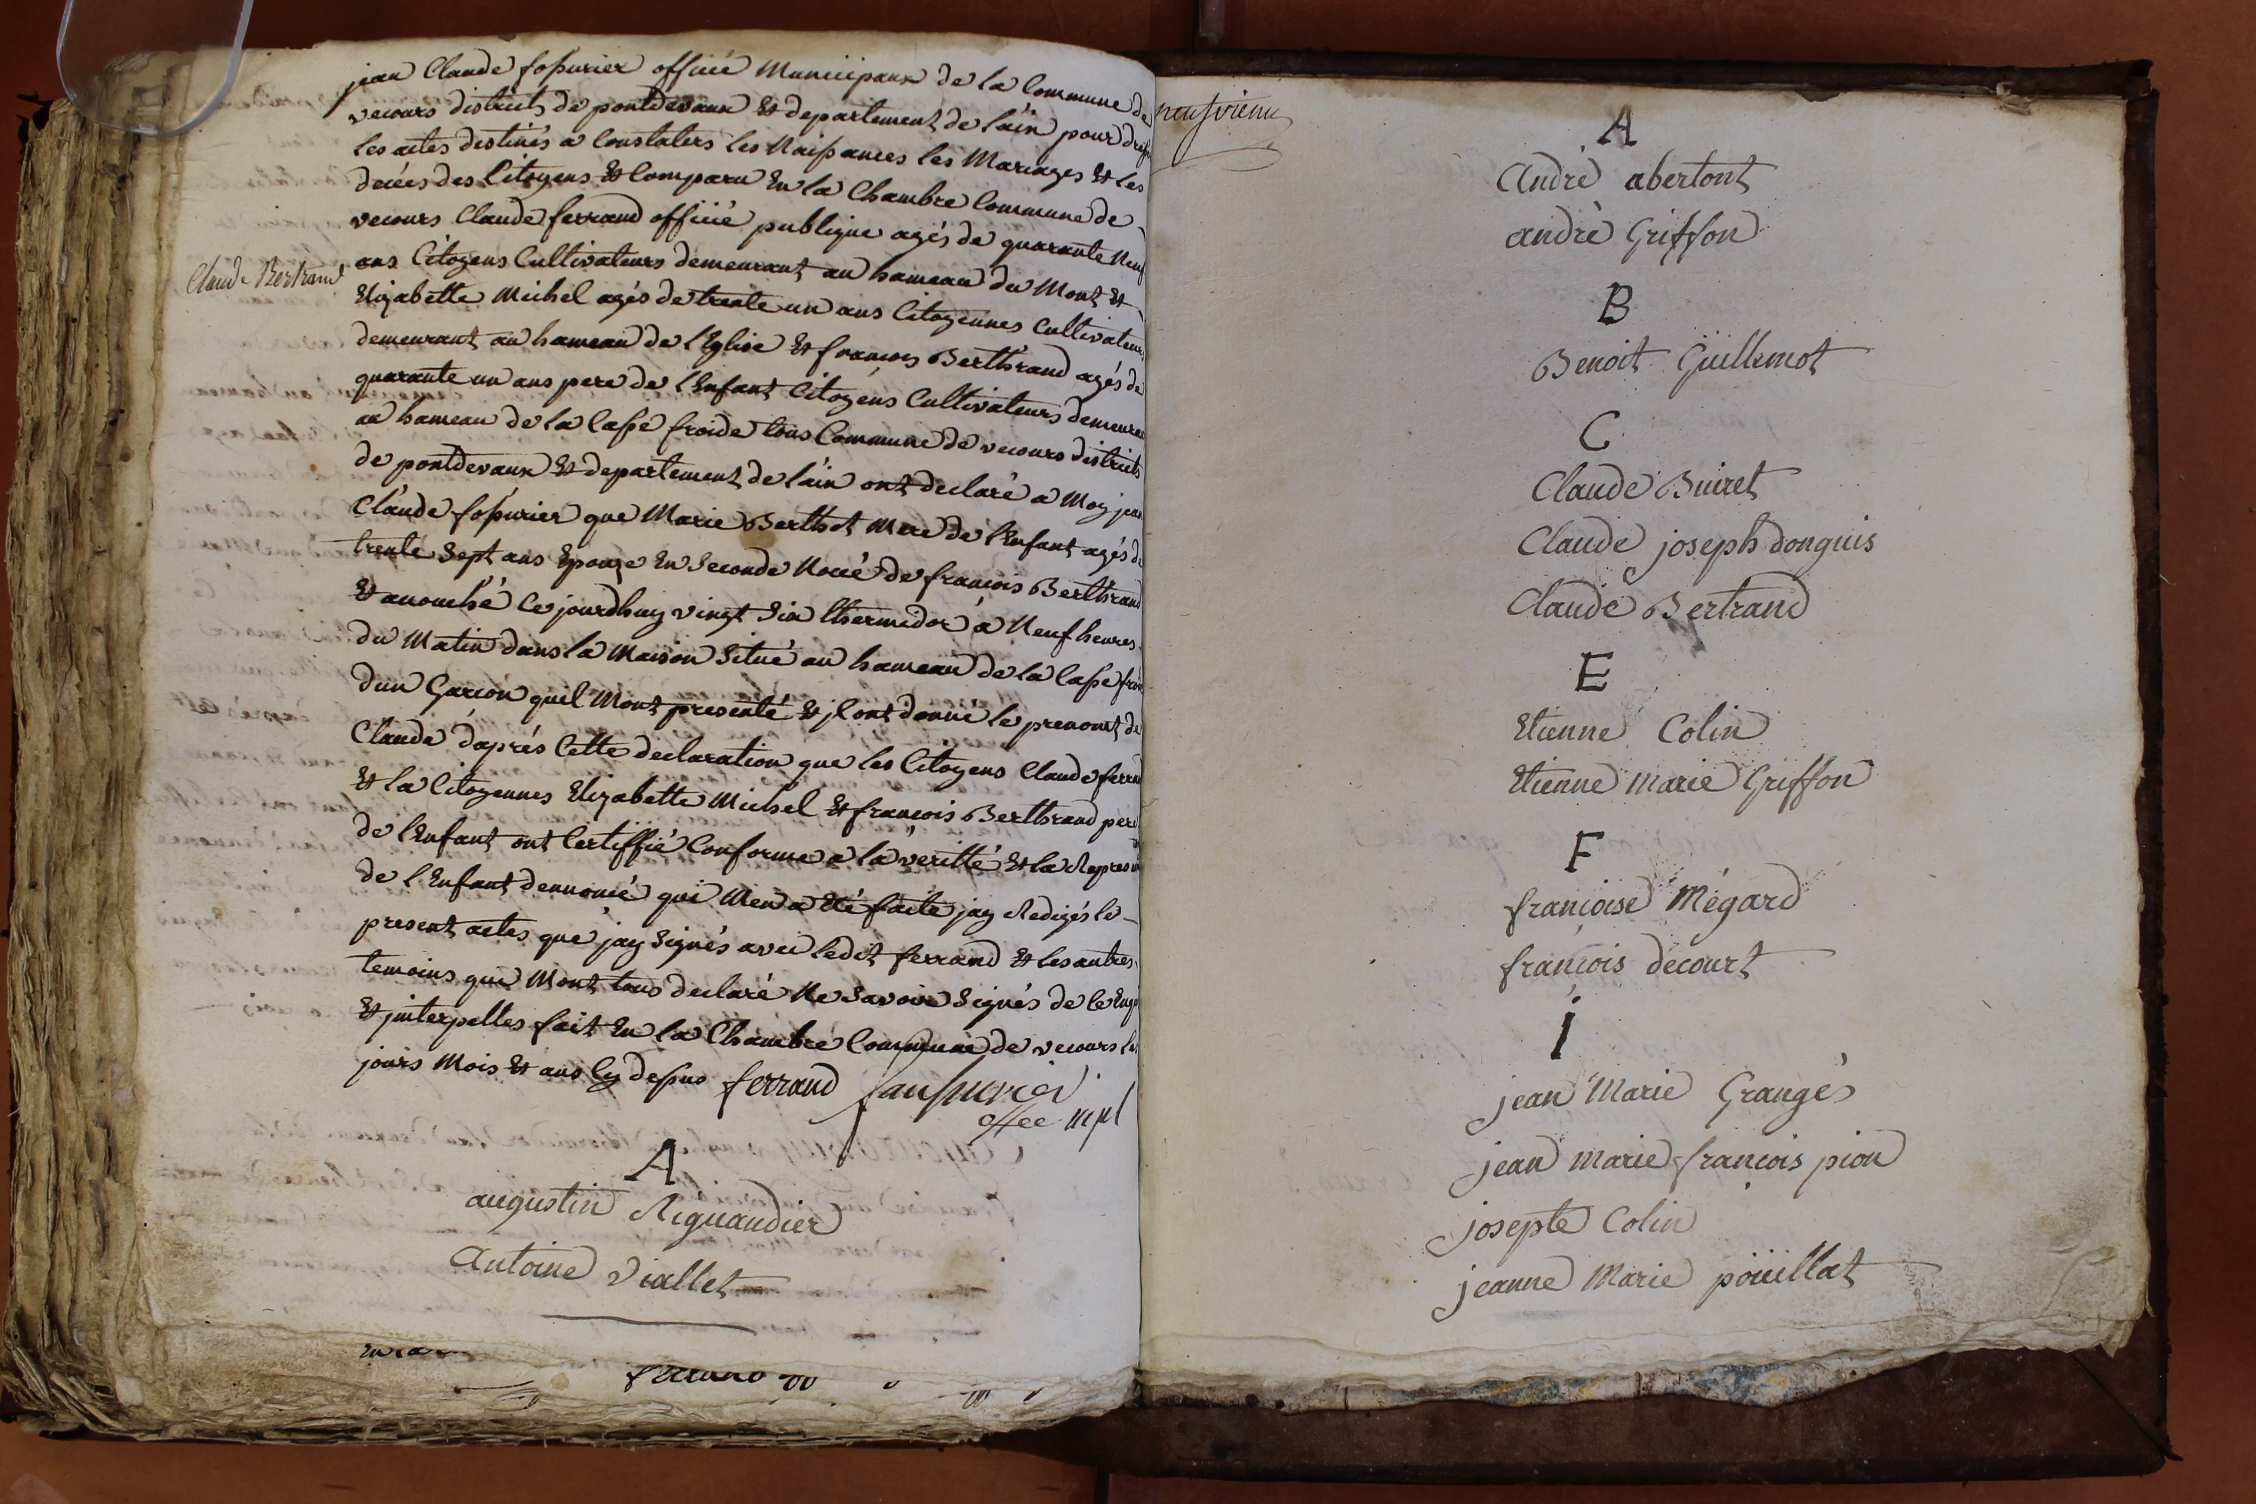 jean Claude fossurier officié Municipaux de la Commune de
vecours district de pontdevaux Et departement de lain pour
les actes destinés a Constaters les Naissances les Mariages Et les
decées des Citoyens Et Comparu En la Chambre Commune de
vecours Claude ferrand officié publique agés de quarante Neuf
ans Citoyens Cultivateurs demeurant au hameau du Mont Et
Claude Bertrand
Elizabette Michel agés de trente un ans Citoyennes Cultivateurs
demeurant au hameau de l'Eglise Et francois Berthrand agés de
quarante un ans pere de l'Enfant Citoyens Cultivateurs
au hameau de la Casse froide tous Commune de vecours districts
de pontdevaux Et departement de lain ont declaré a Moy jean
Claude fossurier que Marie Berthet Mere de l'Enfant agés de
trente Sept ans Epouze En Seconde Nocié de francois Berthrand
Et acouché Ce jourdhuy vingt Six thermidor a Neuf heures
du Matin dans la Maison Situé au hameau de la Casse
dun Garcon quil Mont presenté Et jl ont donné le prenomt de
Claude daprés Cette declaration que les Citoyens Claude
Et la Citoyennes Elizabette Michel Et francois Berthrand
de l'Enfant ont Certiffié Conforme a la veritté Et la
de l'Enfant dennoncié qui Men a Eté faite jay Redigés le
present actes que jay Signés avec ledit ferrand Et les autres
temoins qui Mont tous declaré Ne Savoir Signés de Ce
Et jnterpelles fait En la Chambre Commune de vecours les
jours Mois Et ans Cy dessus ferrand faussurier
offee mpl
A
augustin Riguaudier
Antoine Viallet
ferrand
A
André abertont
andré Griffon
B
Benoit Guillemot
C
Claude Buiret
Claude joseph donguis
Claude Bertrand
E
Etienne Colin
Etienne Marie Griffon
F
francoise Mégard
francois decourt
I
jean Marie Grangés
jean marie francois pion
josepte Colin
jeanne Marie poüillat